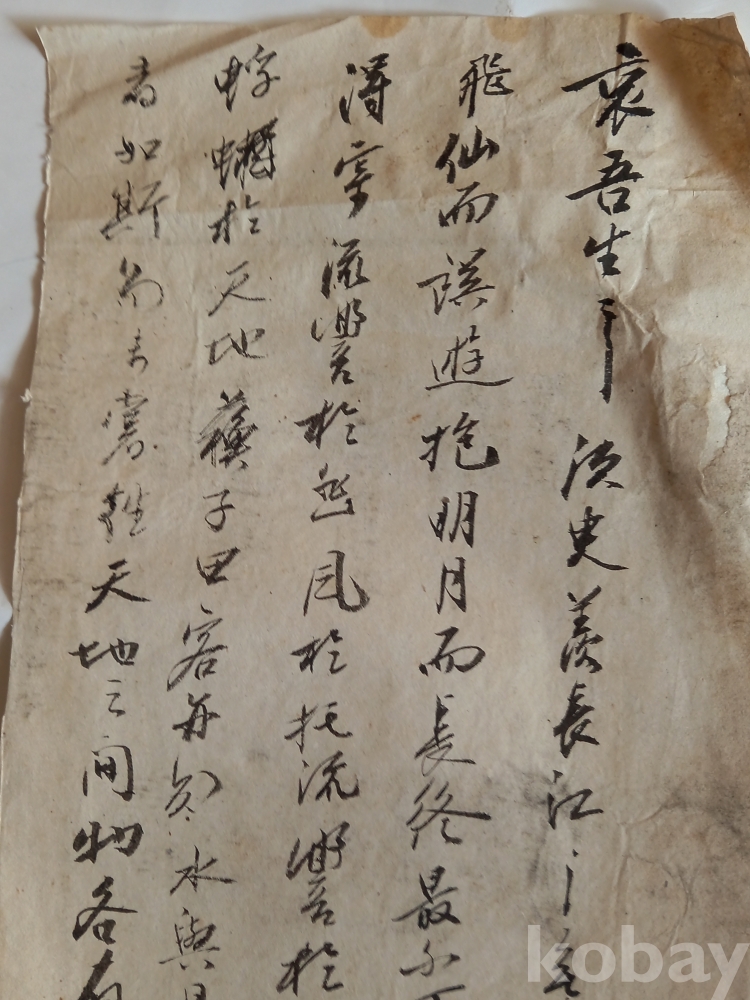 哀吾生之須臾羡長江之
飛仙而誤遊抱明月而長終最不
得流響於悲風於托流響於
蜉於天地蘇子曰客亦知水與
者如斯而未嘗往天地之間物各有
kobay